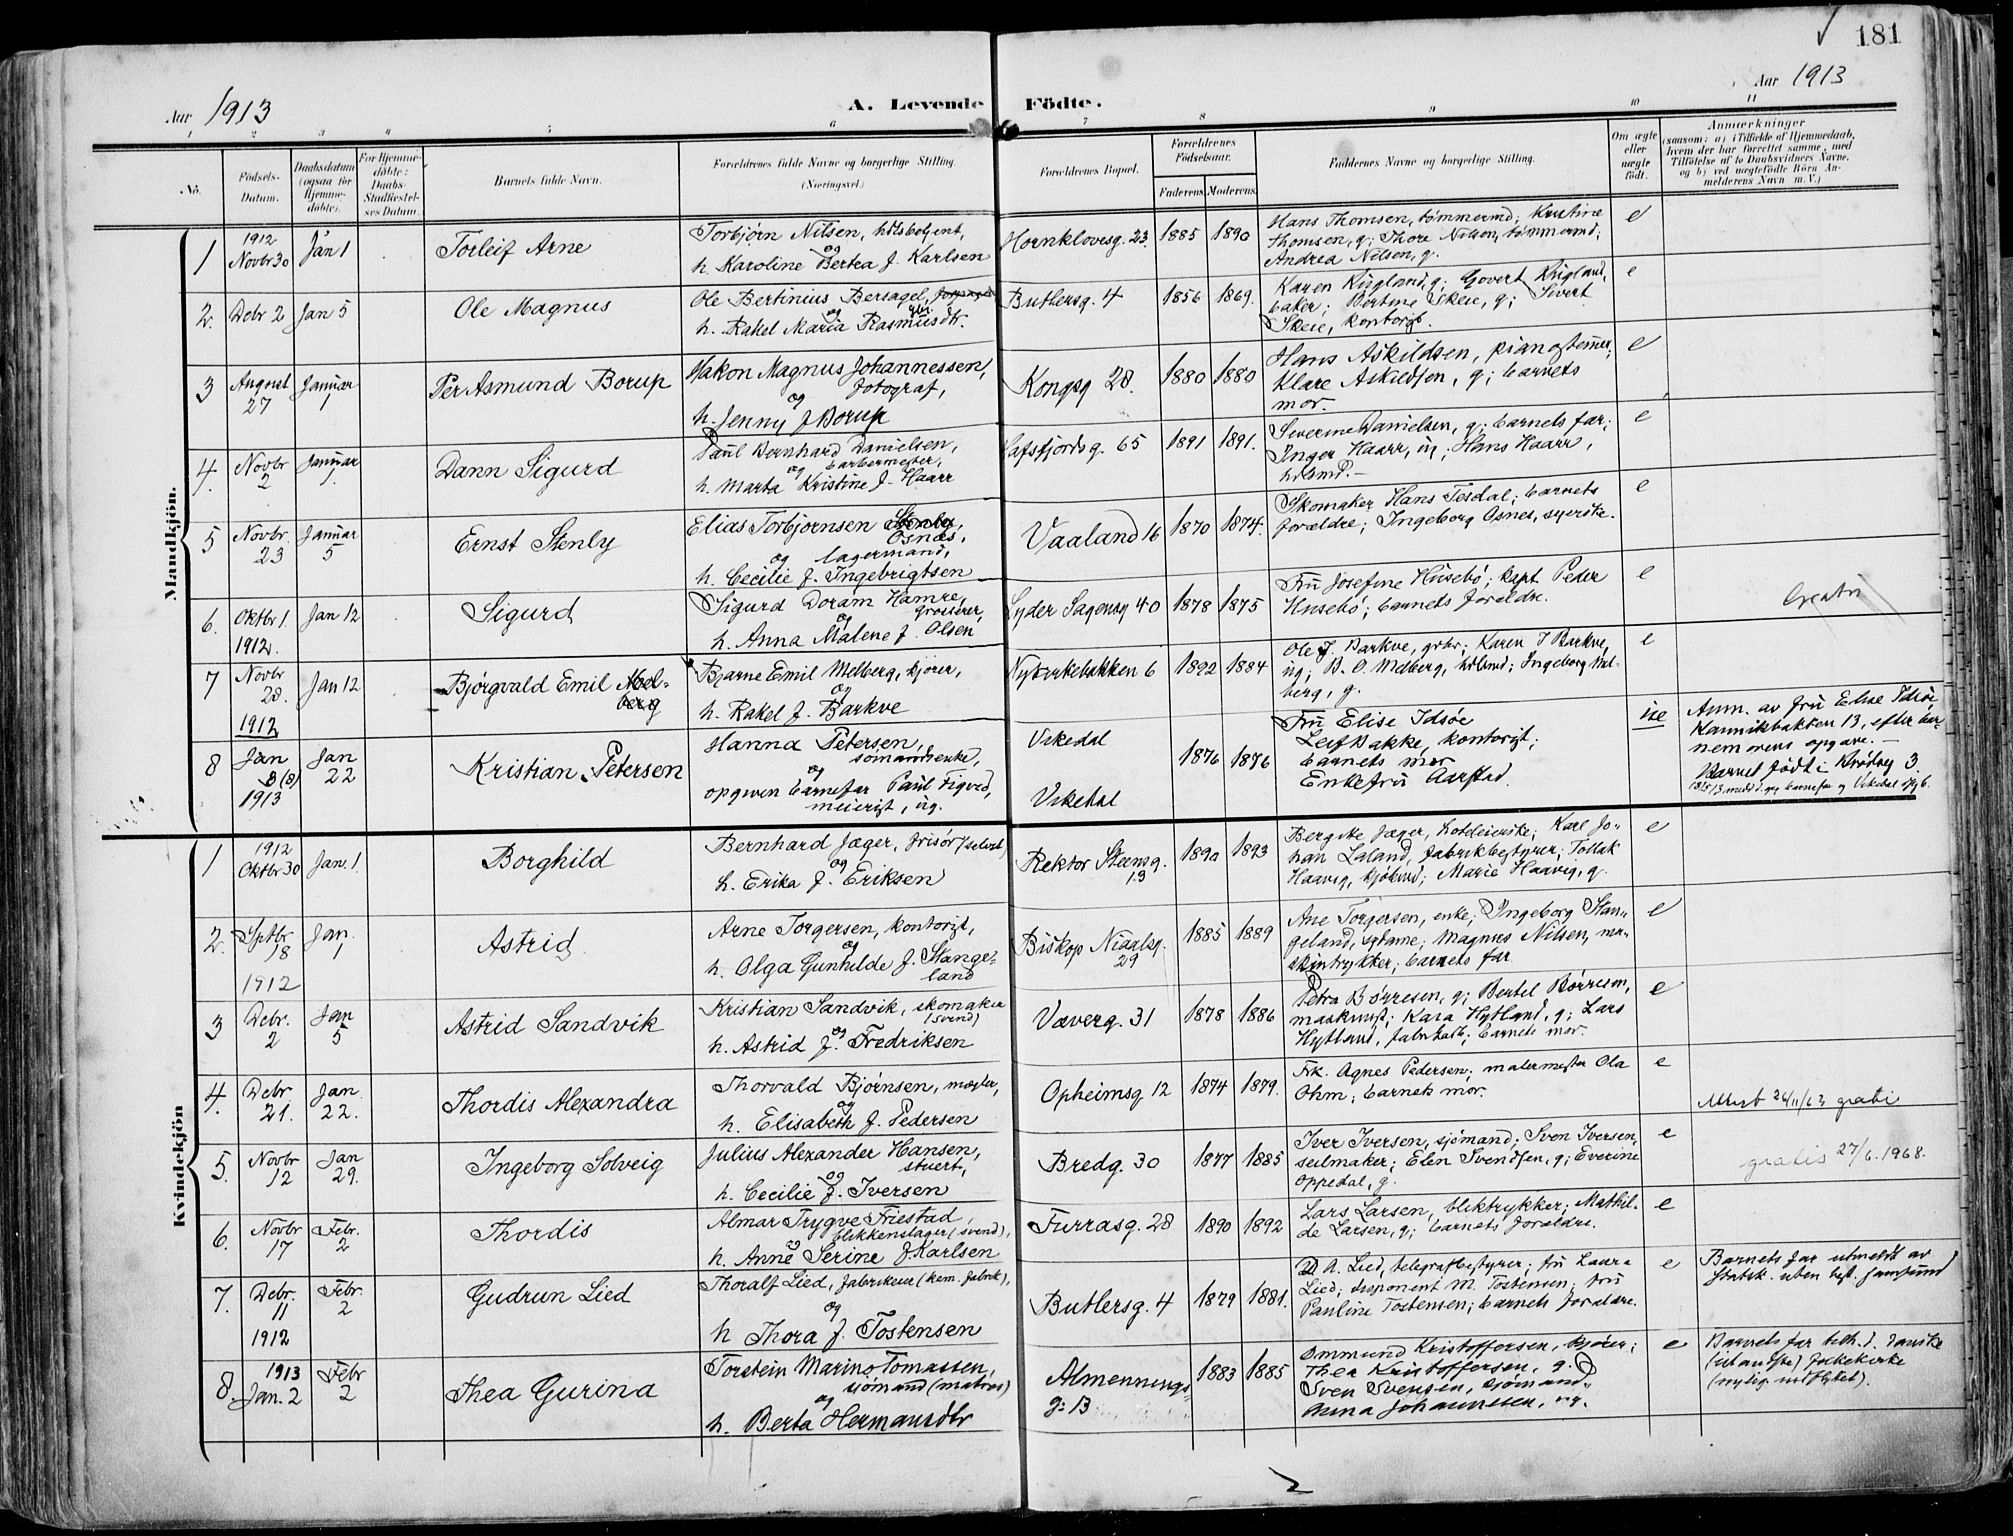 181
Aar 1913
A. Levende Födte.
Aar 1913
1 2 3 4 5 6 7 8 9 10 11
No.
Födsels-
Datum.
Daabsdatum
(ogsaa for
Hjemme-
döbte).
For Hjemme-
döbte:
Daabs-
Stadfæstel-
ses Datum.
Barnets fulde Navn.
Forældrenes fulde Navne og borgerlige Stilling.
(Næringsvei.)
Forældrenes Bopæl.
Forældrenes
Födselsaar.
Faderens. Moderens.
Faddernes Navne og borgerlige Stilling.
Om ægte
eller
uægte
födt.
Anmærkninger
(saasom: a) i Tilfælde af Hjemmedaab,
hvem der har forrettet samme, med
Tilföielse af to Daabsvidners Navne,
og b) ved uægtefödte Börn An-
melderens Navn m. V.)
Mandkjön.
1
1912
Novbr 30
Jan 1
Torleif Arne
Torbjørn Nilsen,
og
h. Karoline Bertea f. Karlsen
Hornklovesg. 23.
1885 1890
Hans Thomsen, tømmermd; Kristine
Thomsen, g; Thore Nilsen, tømmermd;
Andrea Nilsen, g.
e
2.
Debr 2
Jan 5
Ole Magnus
Ole Bertinius Bersagel,
og
h. Rakel Maria Rasmusdtr.
Butlersg. 4
1856 1869.
Karen Kingland, g; Govert Kingland,
baker; Bertine Skeie, g; Sivert
Skeie, kontorist.
e
3
August
27
Januar
1
Per Asmund Borup
Hakon Magnus Johannessen,
fotograf,
og
h. Jenny f Borup
Kongsg 28.
1880 1880
Hans Askildsen, pianostemmer;
Klare Askildsen, g; barnets
mor.
e
4.
Novbr
2
Januar
1.
Dann Sigurd
Paul Bernhard Danielsen,
barbermester,
og
h. Marta Kristine f. Haarr
Hafsfjordsg. 65
1891 1891.
Severine Danielsen, g; barnets far;
Inger Haarr, ug; Hans Haarr,
e
5
Novbr.
23
Januar
5
Ernst Stenly
Elias Torbjornsen Stenly,
Osnes,
og lagermand,
h. Cecilie f. Ingebrigtsen
Vaaland 16
1870 1874.
Skomaker Hans Tesdal; barnets
forældre; Ingeborg Osnes, syerske.
e
6.
Oktbr 1
1912.
Jan 12
Sigurd
Sigurd Doram Hamre,
grosserer,
og
h. Anna Malene f. Olsen
Lyder Sagensg 40
1878 1875
Fru Josefine Husebö; kapt. Peder
Husebö; barnets forældre.
e
Gratis
7
Novbr
28.
1912
Jan 12
Bjørgvald Emil Mel-
berg
Bjarne Emil Melberg, kjører,
og
h. Rakel f. Barkve
Nykirkebakken 6
1892 1884
Ole J. Barkve, grbr; Karen J Barkve,
ug; B. O. Melberg, Ingeborg Mel-
berg, g.
e
8
Jan
8 (8)
1913
Jan
22
Kristian Petersen
Hanna Petersen,
sömandsenke,
og
opgiven barnefar Paul Tigved,
meierist, ug.
Vikedal
Vikedal
1876 1876
Fru Elise Idsöe
Leif Bakke, kontorist;
barnets mor
Enkefru Aarstad.
ue
Anm. av fru Elise Idsöe
Kannikbakken 13, efter bar-
nem orens opgave.
Barnet födt i Brödreg 3.
Kvindekjön
1
1912
Oktbr 30
Jan. 1
Borghild
Bernhard Jæger, frisör (selvst)
og
h. Erika f. Eriksen
Rektor Steensg.
13
1890 1893
Bergitte Jæger, hoteleierske; Karl Jo-
han Laland, fabrikbestyrer; Tollak
Haavig, kjöbmd; Marie Haavig, g.
e
2.
Sptbr
18
1912
Jan.
1
Astrid
Arne Torgersen, kontorist,
og
h. Olga Gunhilde f. Stange-
land
Biskop Niaalsg.
29
1885 1889
Ane Torgersen, enke; Ingeborg Stan-
geland, sydame; Magnus Nilsen, ma-
skintrykker; barnets far
e
3
Debr.
2
Jan
5
Astrid Sandvik
Kristian Sandvik, skomaker
(svend)
og
h. Astrid f. Fredriksen
Væverg. 31
1878 1886
Petra Börresen, g; Bertel Börresen,
maskinist; Kara Hytland, g; Lars
Hytland, barnets mor.
e
4.
Debr
21.
Jan
22.
Thordis Alexandra
Thorvald Bjørnsen, mægler,
og
h. Elisabeth f. Pedersen
Opheimsg 12
1874 1879.
Frk. Agnes Pedersen; malermester Ola
Ohm; barnets mor.
e
Attest 26/11/63 gratis
5.
Novbr
12
Jan
29.
Ingeborg Solveig
Julius Alexander Hansen,
stuert,
og
h. Cecilie f. Iversen
Bredg. 30
1877 1885
Iver Iversen, sjömand; Sven Iversen,
seilmaker; Elen Svendsen, g; Everine
Oppedal, g.
e
gratis 27/6.1968.
6.
Novbr
17
Febr.
2
Thordis
Almar Trygve Friestad,
blikkenslager (svend),
og
h. Anne Serine f Karlsen
Furrasg. 28
1890 1892
Lars Larsen, bliktrykker; Mathil-
de Larsen, g; barnets forældre.
e
7.
Debr.
11
1912
Febr.
2
Gudrun Lied
Thoralf Lied, fabrikeier (kem. fabrik),
og
h Thora f. Tostensen
Butlersg. 4
1879 1881.
A. Lied, telegrafbestyrer; fru Laura
Lied; disponent M. Tostensen; fru
Pauline Tostensen; barnets forældre.
e
Barnets far utmeldt av
statsk. uten best. samfund
8
1913
Jan. 2
Febr
2
Thea Gurina
Torstein Marino Tomassen,
sjömand (matros)
og
h. Berta Hermansdtr
Almennings-
g: 13
1883 1885
Ommund Kristoffersen, kjörer;
Thea Kristoffersen, g.
Sven Svensen, sjömand.
Anna Johannesen, ug.
e
Barnets far
folkekirke
(nylig indflyttet).
2